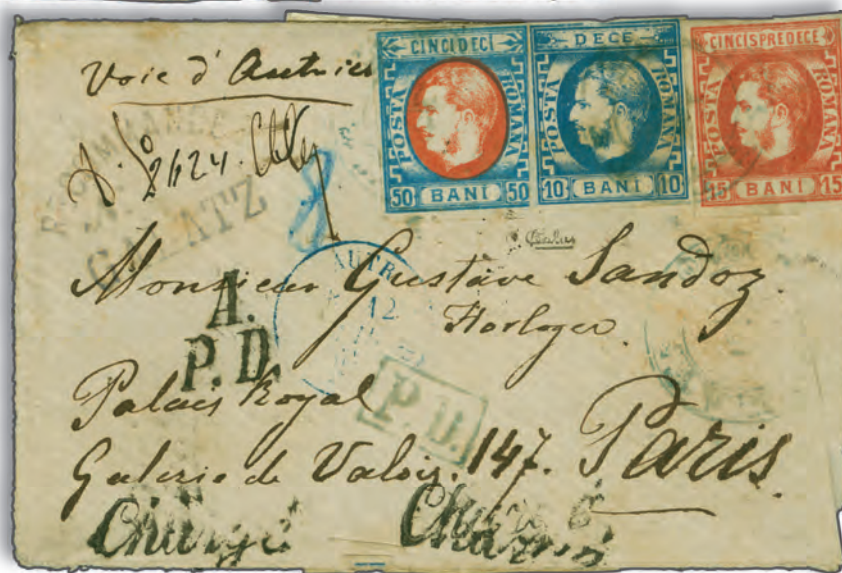 Voie d'Autriche
CINCI DECI
POSTA
ROMANA
50 BANI 50
DECE
POSTA
ROMANA
10 BANI 10
CINCISPREDECE
POSTA
ROMANA
15 BANI 15
RECOMMANDÉ
2624.
GALATZ
8
AUTR
12
Monsieur Gustave Sandoz.
Horloger.
A.
P.D.
P.D.
Palais Royal
Galerie de Valois. 147. Paris.
Chargé Chargé